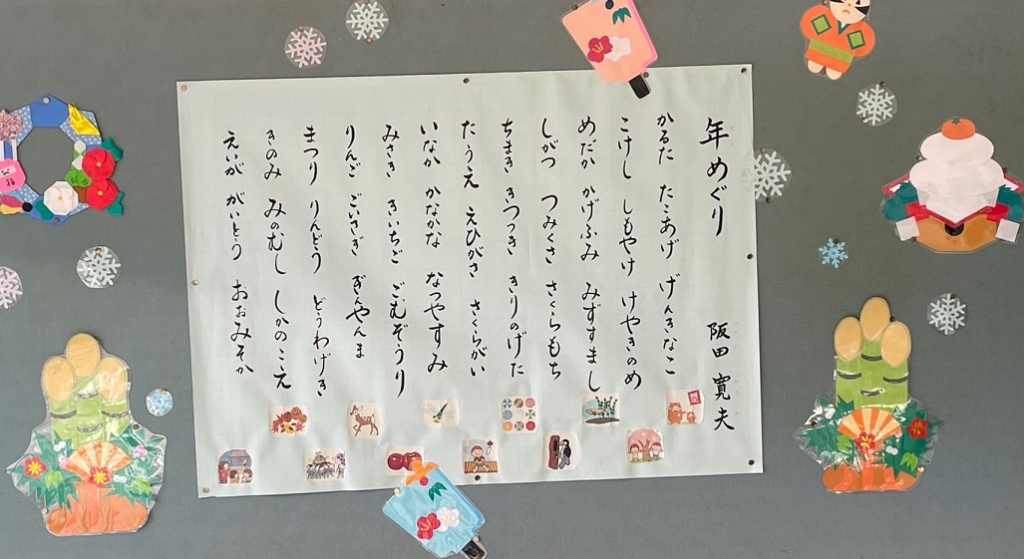 年めぐり 阪田 寛夫
かるた たこあげ げんきなこ
こけし しもやけ けやきのめ
めだか かげふみ みずすまし
しがつ つみくさ さくらもち
ちまき きつつき きりのげた
たうえ えひがさ さくらがい
いなか かなかな なつやすみ
みさき きいちご ごむぞうり
りんご ごいさぎ ぎんやんま
まつり りんどう どうわげき
きのみ みのむし しかのこえ
えいが がいとう おおみそか